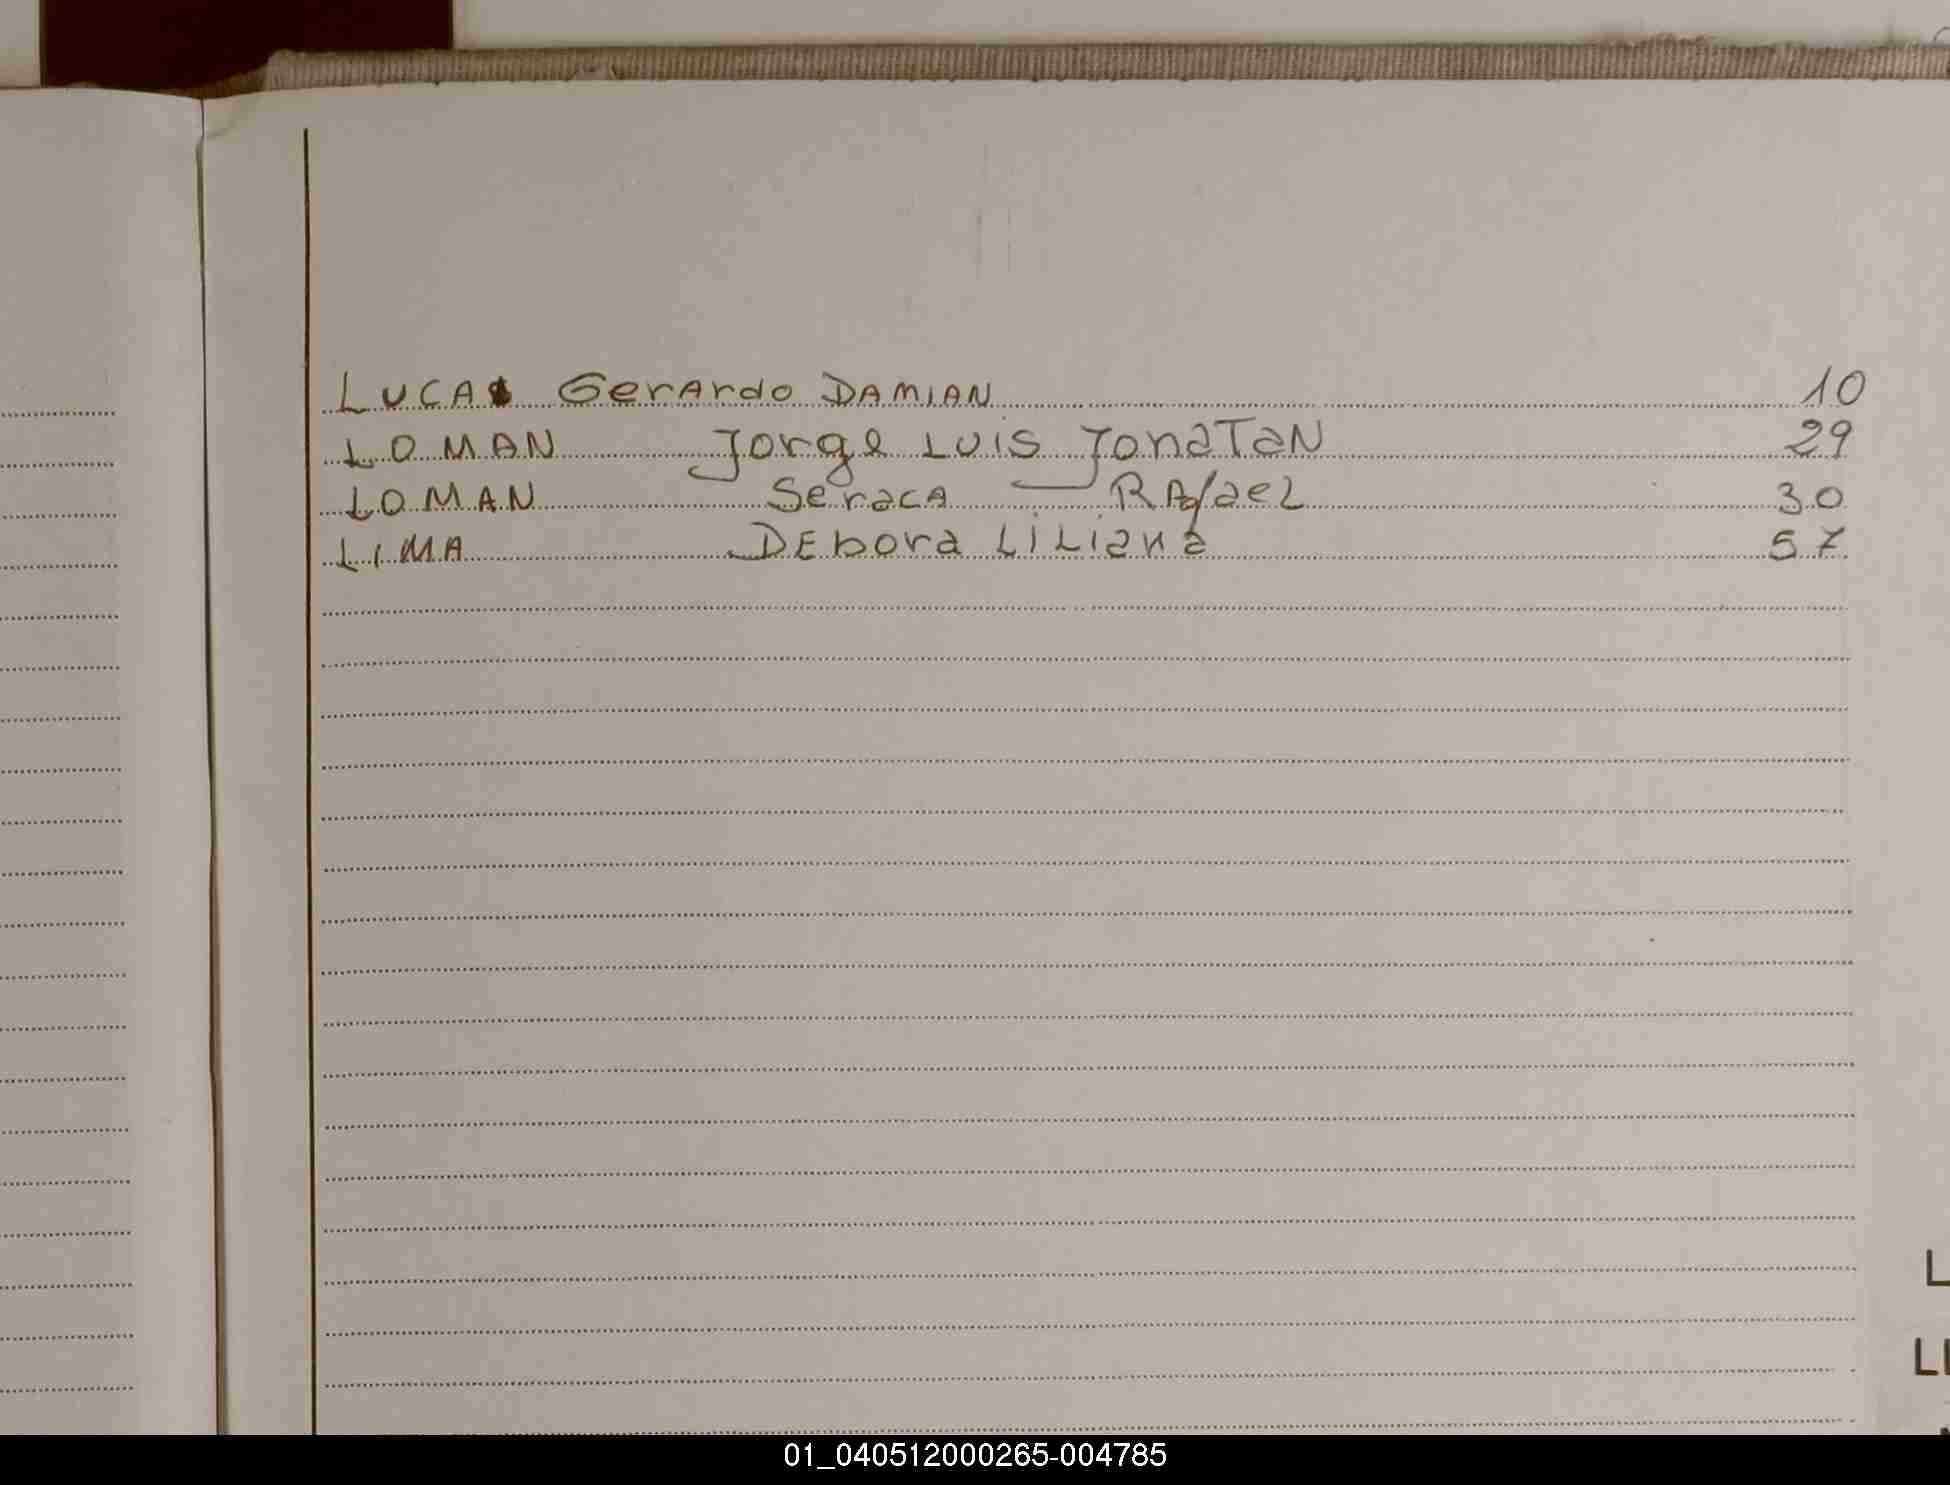 LUCAS Gerardo DAMIAN 10
LOMAN Jorge LUIS JonaTaN 29
LOMAN Seraca RAfaeL 30
LIMA DEbora LiLiana 57
L
LL
01_040512000265-004785